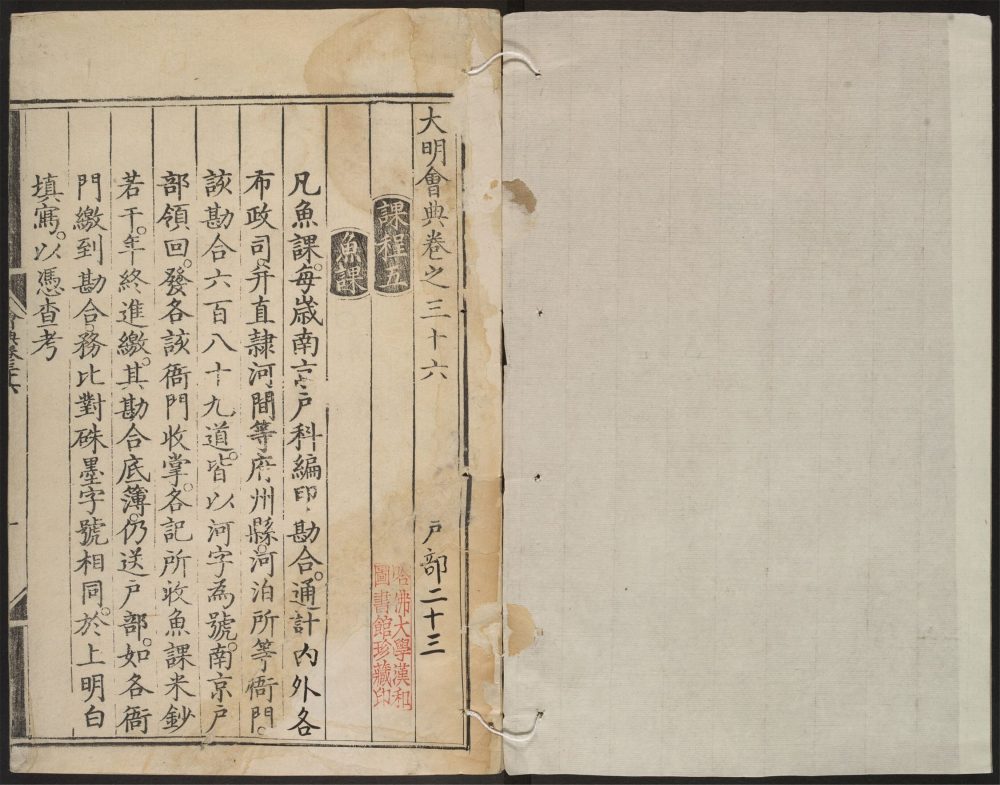 大明會典卷之三十六 戶部二十三
課程五
魚課
凡魚課。每歲南京戶科編印勘合。通計內外各
布政司。并直隸河間等府州縣。河泊所等衙門。
該勘合六百八十九道。皆以河字為號。南京戶
部領回。發各該衙門收掌。各記所收魚課米鈔
若干。年終進繳。其勘合底簿。仍送戶部。如各衙
門繳到勘合。務比對硃墨字號相同。於上明白
填寫。以憑查考
哈佛大學漢和
圖書館珍藏印